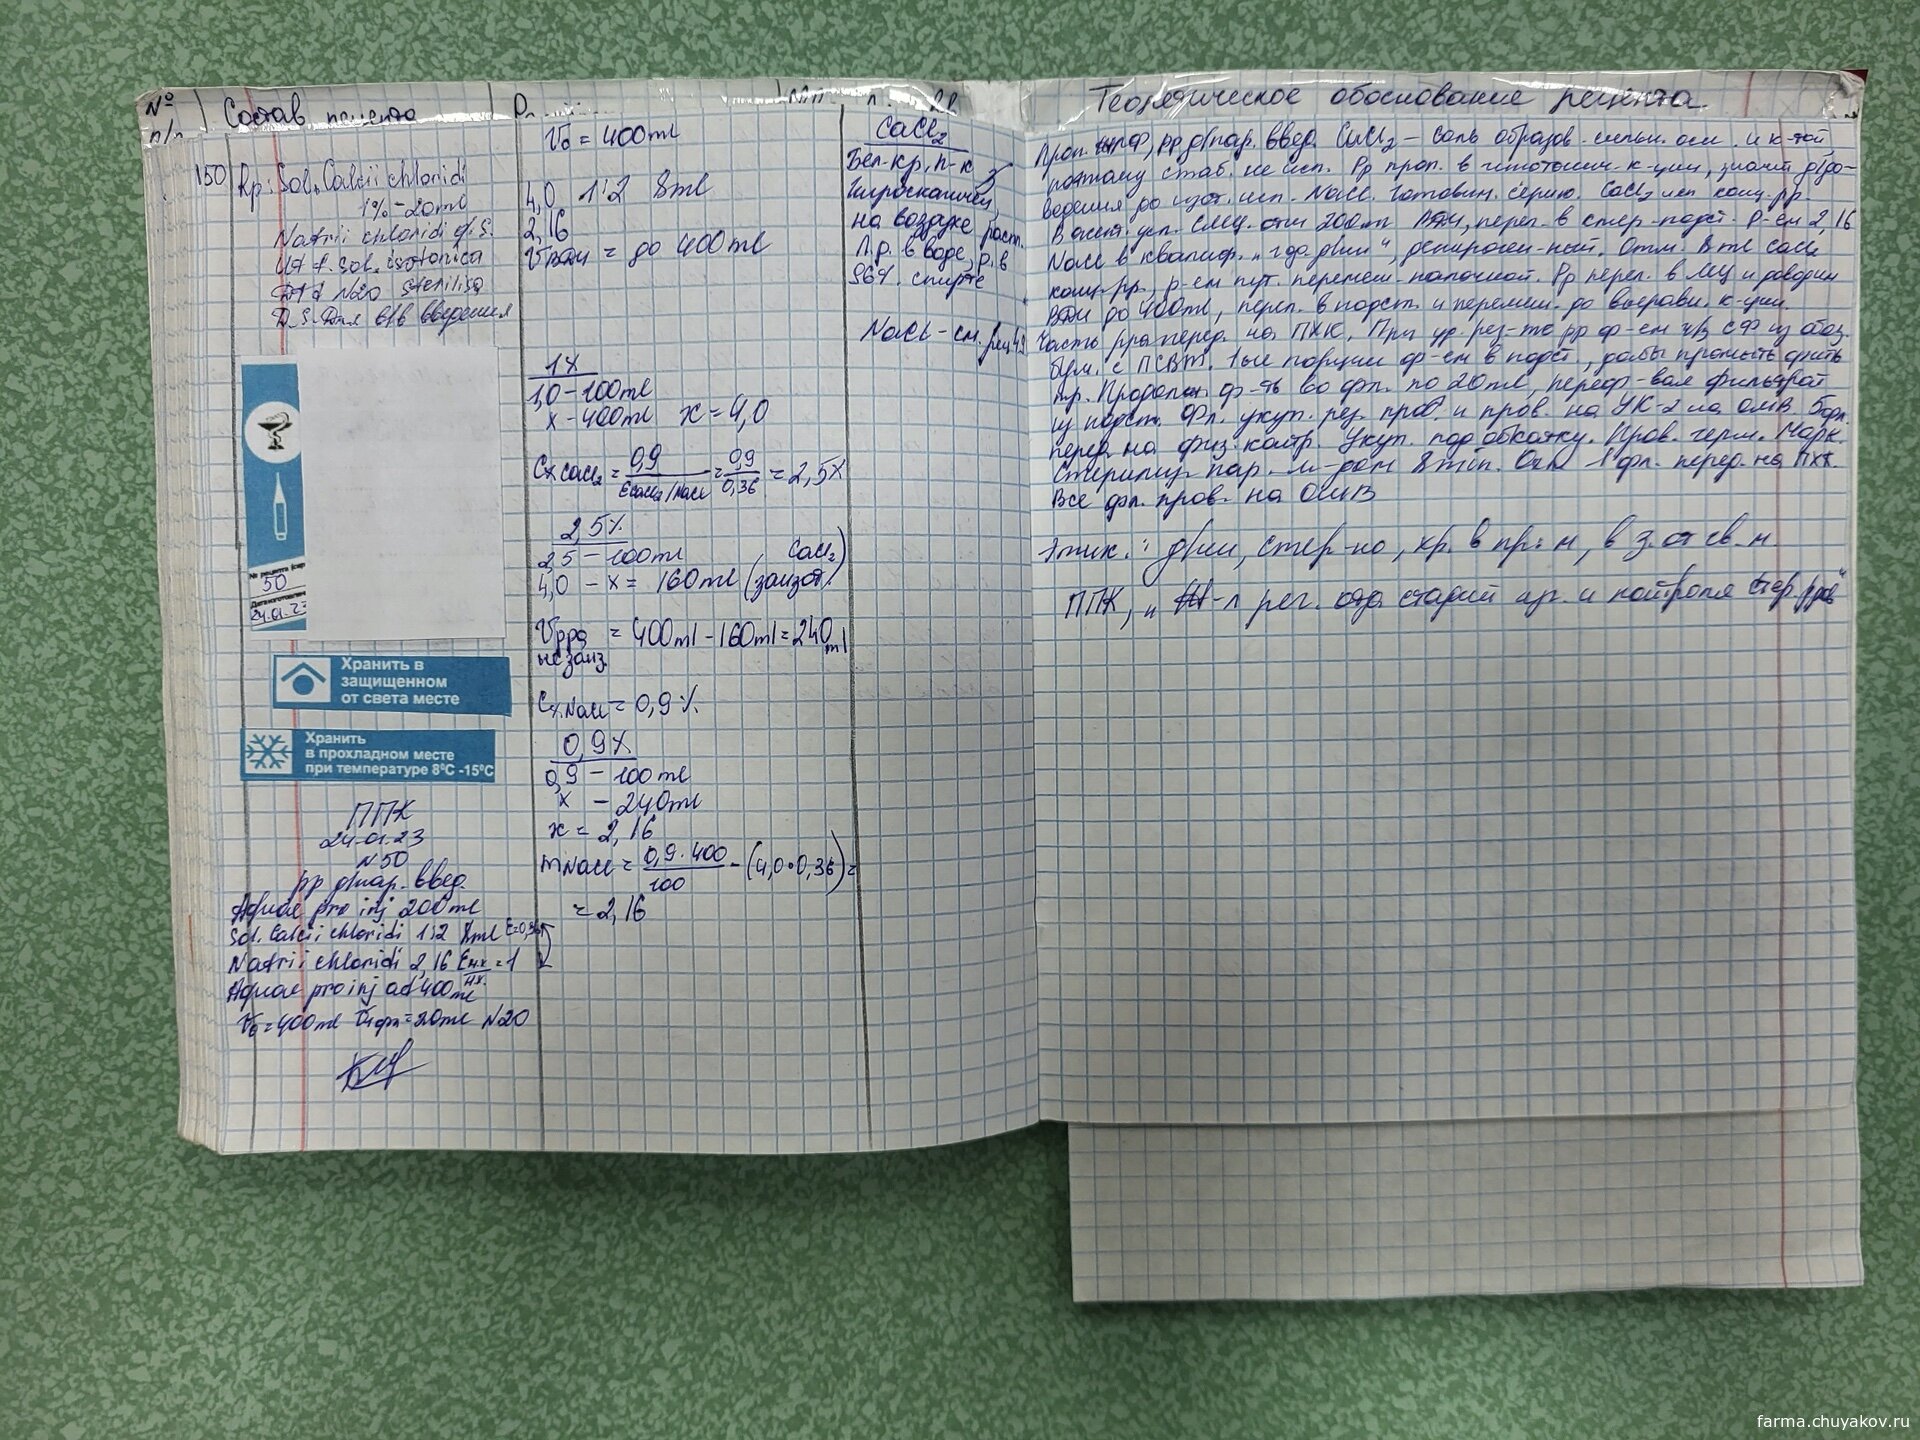 № п/п
Состав рецепта
150
Rp: Sol. Calcii chloridi
1% - 20ml
Natrii chloridi q.s.
Ut f. sol. isotonica
Dtd N20 sterilisa
D.S. Для в/в введения
№ рецепта
50
Дата изготовлен
24.01.23
Хранить в
защищенном
от света месте
Хранить
в прохладном месте
при температуре 8⁰С -15⁰С
ППК
24.01.23
N50
рр д/пар. введ.
Aquae pro inj 200ml
Sol. Calcii chloridi 1:2 8ml
Natrii chloridi 2,16
Aquae pro inj ad 400ml
V₀=400ml V₁фл=20ml N20
V₀ = 400ml
4,0 1:2 8ml
2,16
Vвди = до 400ml
1%
1,0 - 100ml
x - 400ml x = 4,0
C% CaCl₂ = 0,9 / ECaCl₂/NaCl = 0,9 / 0,36 = 2,5%
2,5%
2,5 - 100ml
4,0 - x = 160ml (заизот. CaCl₂)
Vрра = 400ml - 160ml = 240ml
незаиз.
C% NaCl = 0,9%
0,9%
0,9 - 100ml
x - 240ml
x = 2,16
mNaCl = 0,9·400 / 100 - (4,0·0,36) =
= 2,16
CaCl₂
Бел-кр, п-к
гигроскопичен,
на воздухе раст.
Л.р. в воде, р. в
96%. спирте
NaCl - см. рец 49
Теоретическое обоснование рецепта
Проп. ЖЛФ, рр д/пар. введ. CaCl₂ - соль образов. сильн. осн. и к-той,
поэтому стаб. не исп. Рр проп. в гипотонич. к-ции, значит д/до-
ведения до изот. исп. NaCl. Готовим серию. CaCl₂ исп. конц. рр.
В асепт. усл. СМЦ. отм 200ml ВДИ, переп. в стер. подст. Р-ем 2,16
NaCl в квалиф. „год. д/ин", депироген-ный. Отм. 8ml CaCl₂
конц. рр, р-ем пут. перемеш. палочкой. Рр перел. в МЦ и доводим
ВДИ до 400ml, перел. в подст. и перемеш. до выравн. к-ции.
Часть рра перед. на ПХК. При уд. рез-те рр ф-ем ч/з сф из обез.
бум. с ПСВТ. 1ые порции ф-ем в подст., дабы промыть фильтр
Продолж. ф-ть во фл. по 20ml, переф-вая фильтрат
из подст. Фл. укуп. рез. проб. и пров. на УК-2 на ОМВ. 5фл.
перед. на физ. контр. Укуп. под обкатку. Пров. герм. Марк.
Стерилиз. пар. м-дом 8min. Отм 1 фл. перед. на ПХК.
Все фл. пров. на ОМВ
Этик.: д/ин, стер-но, хр. в пр. м, в з. от св. м
ППК, „Ж-л рег. отд. стадий из. и контроля стер. рров"
farma.chuyakov.ru